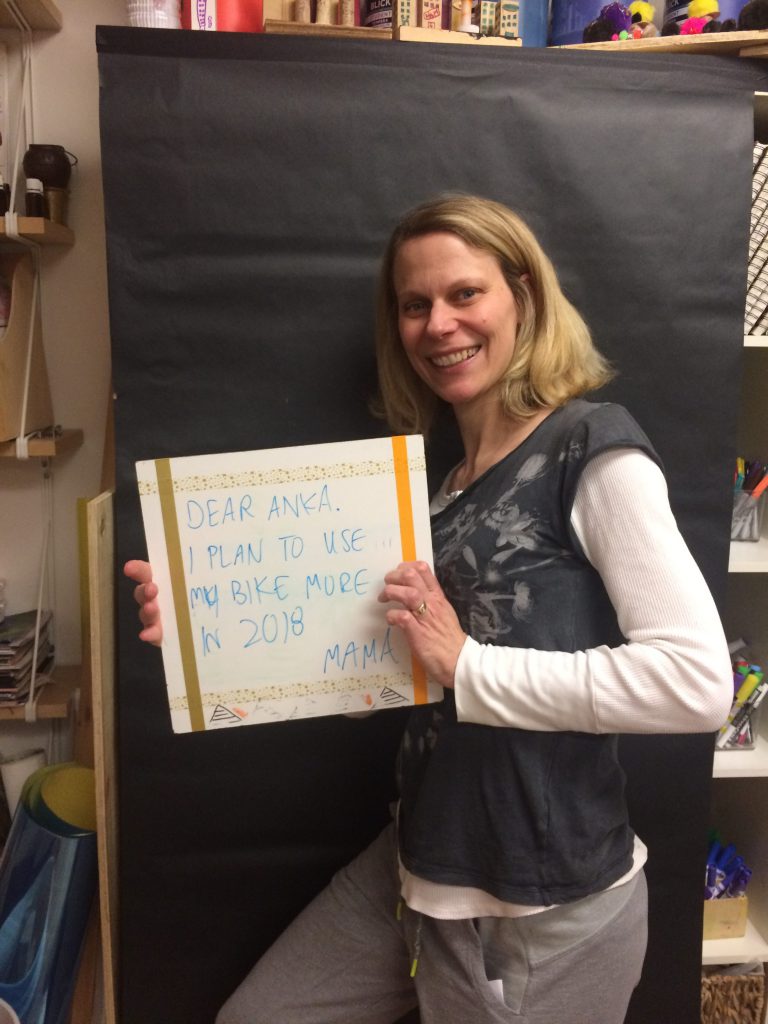 BLICK
DEAR ANKA.
I PLAN TO USE ...
MY BIKE MORE
IN 2018
MAMA